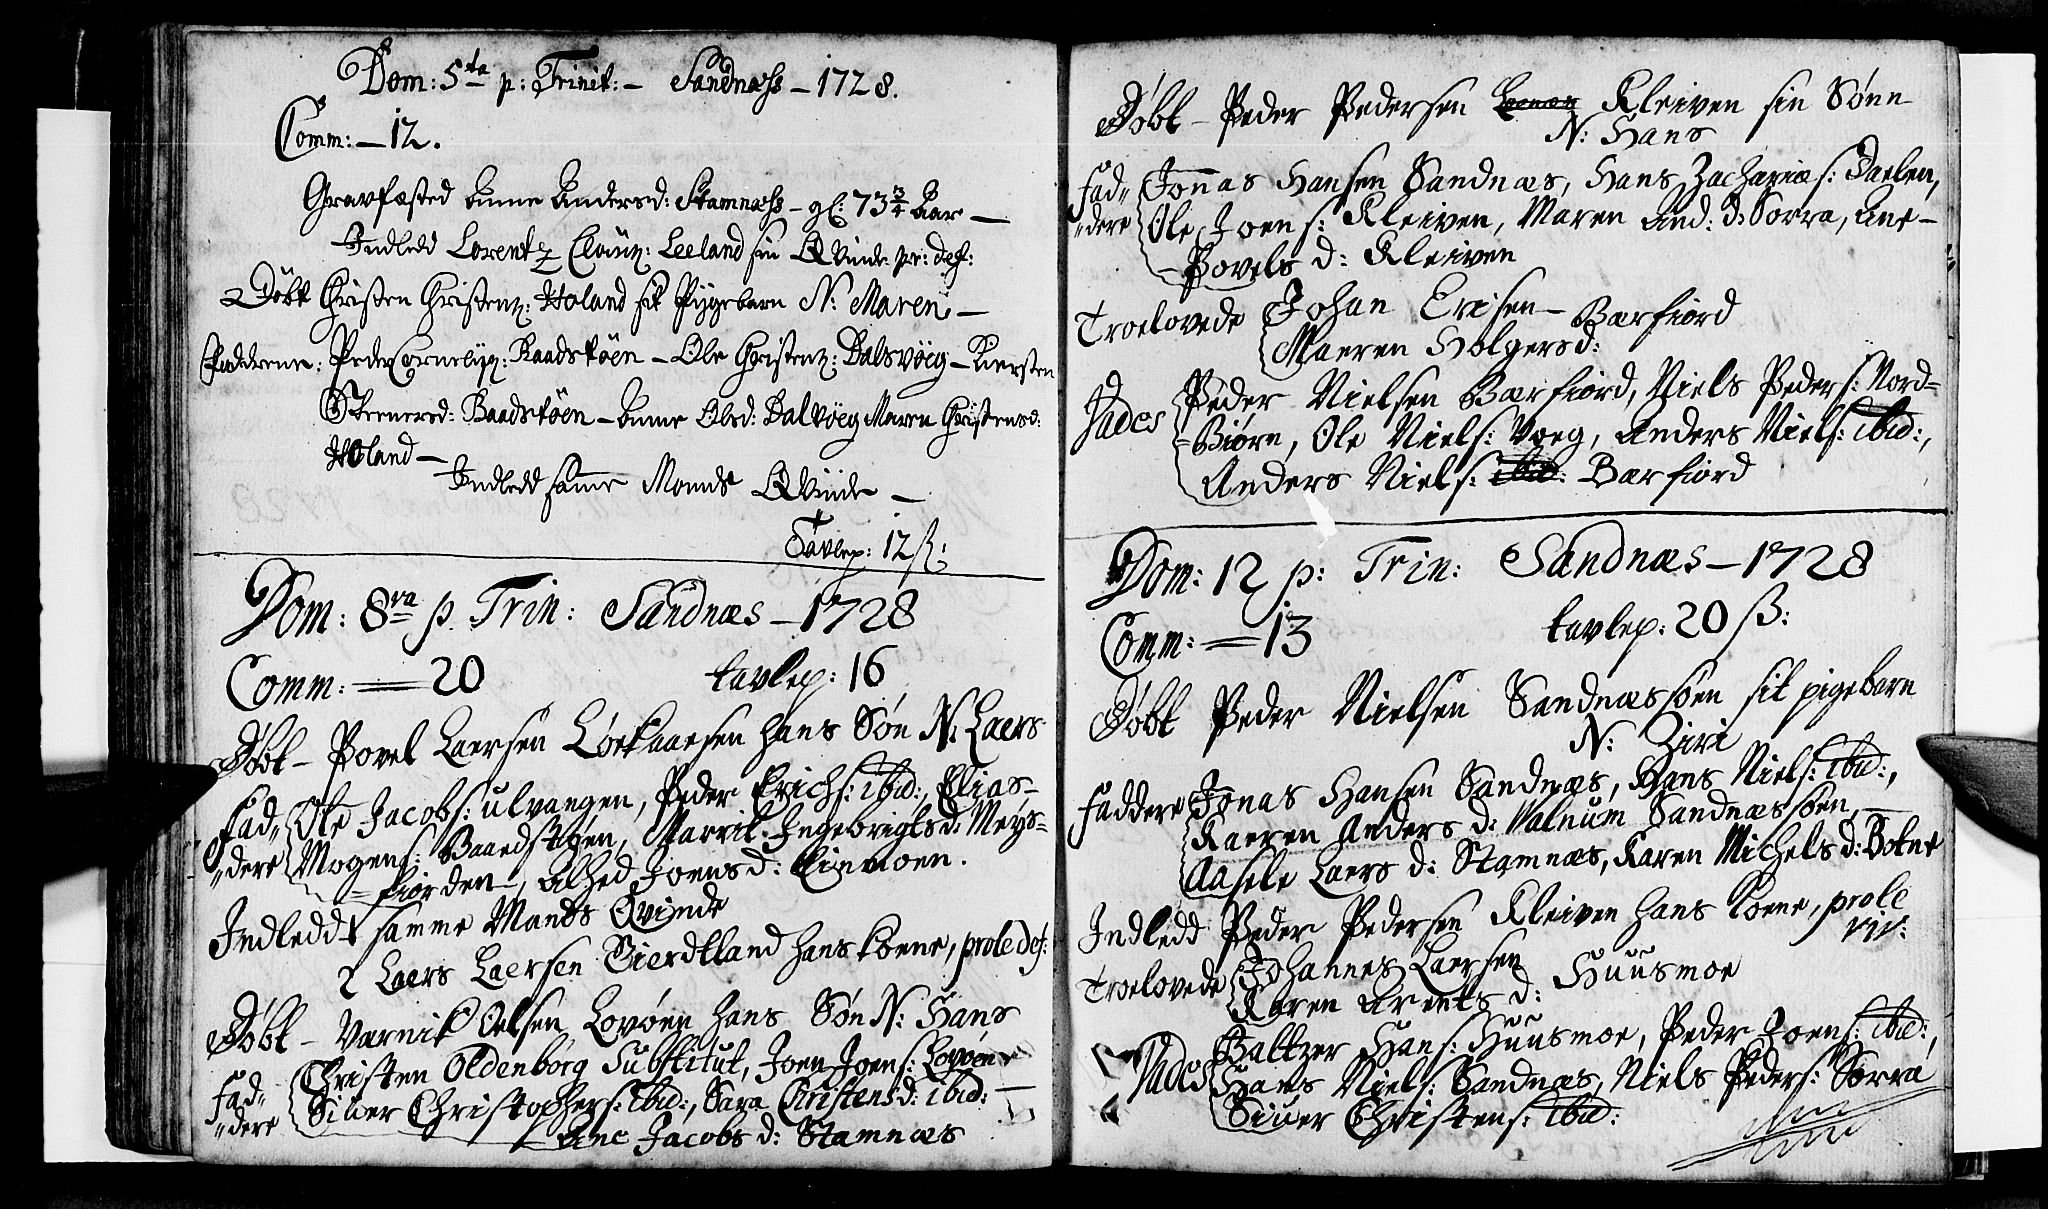 Dom: 5ta p: Trinit: – Sandnæss – 1728.
Comm: – 12.
Gravfæsted Anne Andersd: Stamnæss – gl: 73 3/4 Aar –
Indledd Lorentz Clausz: Leeland sin Qvinde pr: def:
Döbt Christen Christenz: Holand sit Pygebarn N: Maren –
Fadderne: Peder Cornelyz: Baadsköen – Ole Christenz: Dalsvöeg – Kiersten
Steenersd: Baadsköen – Anne Olsd: Dalvöeg Maren Christensd:
Holand –
Indledd samme Mands Qvinde –
Tavlep: 12 ß:
Dom: 8va p. Trin: Sandnæs – 1728
Comm: = 20 tavlep: 16
Døbt – Povel Laersen Løekaaesen hans Søn N: Laers
Fad= Ole Jacobs: ulvangen, Peder Erichs: ibid:, Elias–
=dere Mogens: Baardskøen, Marrit Ingebrigts d: Meÿs=
=fiorden, alhed Joens d: Einmoen.
Indledd samme Mands Qvinde
2 Laers Laersen Bierdtland hans koene, prole def:
Døbt – Varnik Oelsen Lovøen hans Søn N: Hans
Christen Oldenborg Substitut, Joen Joens: Lovøen
Fad= Siuer Christophers: ibid:, Sara Christensd: ibid: –
=dere Ane Jacobs d: Stamnæs
Døbt – Peder Pedersen Kleiven sin Sønn
N: Hans
Fad= Jonas Hansen Sandnæs, Hans Zachariæs: Daelen,
=dere Ole Joens: Kleiven, Maren And: d: Sorra, Ane –
– Povels d: Kleiven
Troelovede Johan Ericsen – Bærfiord
Maeren Holgersd:
Peder Nielsen Bærfiord, Niels Peders: Nord=
Vades =Biørn, Ole Niels: Voeg, Anders Niels: ibid:,
Anders Niels: ibid: Bærfiord
Dom: 12 p: Trin: Sandnæs – 1728
Comm: = 13 tavlep: 20 ß:
Døbt Peder Nielsen Sandnæssøen sit pigebarn
N: Ziri
Faddere Jonas Hansen Sandnæs, Hans Niels: ibid:,
Kaeren Anders d: Valnum Sandnæssøen, –
Aasele Laers d: Stamnæs, Karen Michels d: Botne
Indledd Peder Pedersen Kleiven hans koene, prole
viv:
Troelovede Johannes Laersen Huusmoe
Karen Arents d:
Baltzer Hans: Huusmoe, Peder Joens: ibid:,
Vades Hans Niels: Sandnæs, Niels Peders: Sorra
Siuer Christens: ibid: